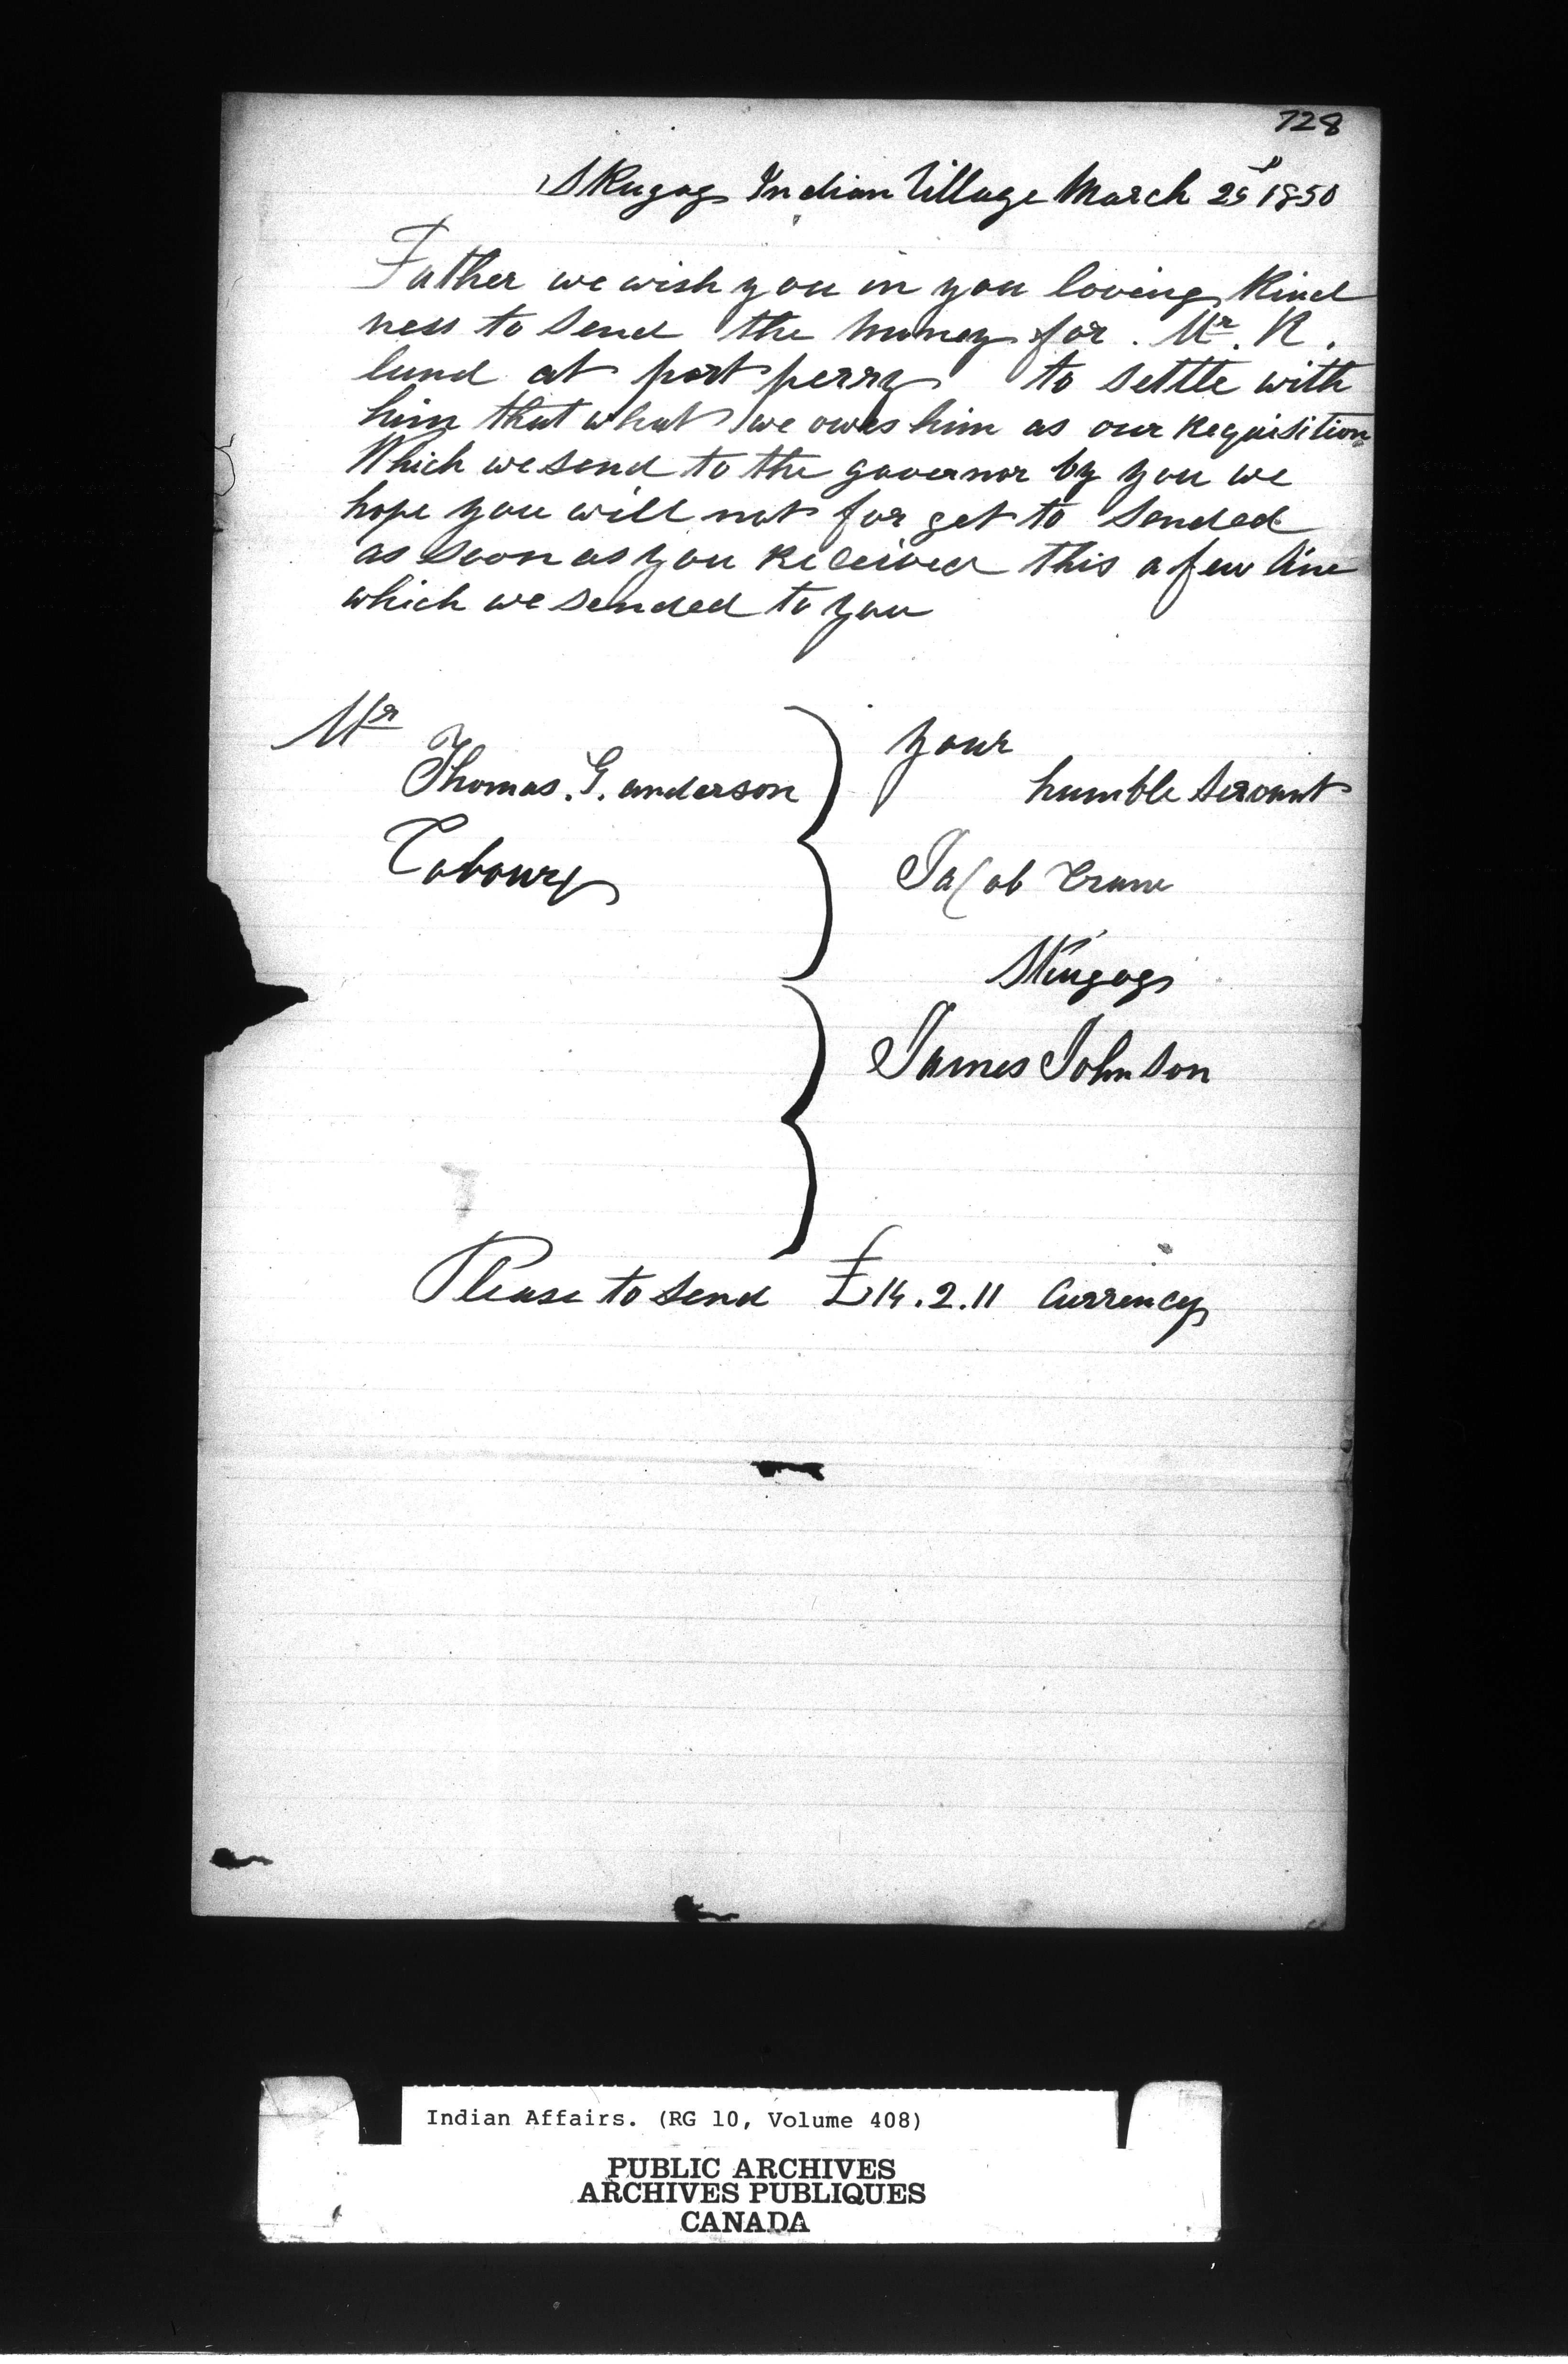 728
Skugog Indian Village March 25 1850
Father we wish you in you loving kind
ness to send the money for . Mr. R.
lund at port perry to settle with
him that what we owes him as our requisition
Which we send to the governor by you we
hope you will not for get to sended
as soon as you received this a few line
which we sended to you
Mr
Thomas. G. anderson
Cobourg
your
humble servant
Jacob Crane
Skugog
James Johnson
Please to send £14.2.11 Currency
Indian Affairs. (RG 10, Volume 408)
PUBLIC ARCHIVES
ARCHIVES PUBLIQUES
CANADA